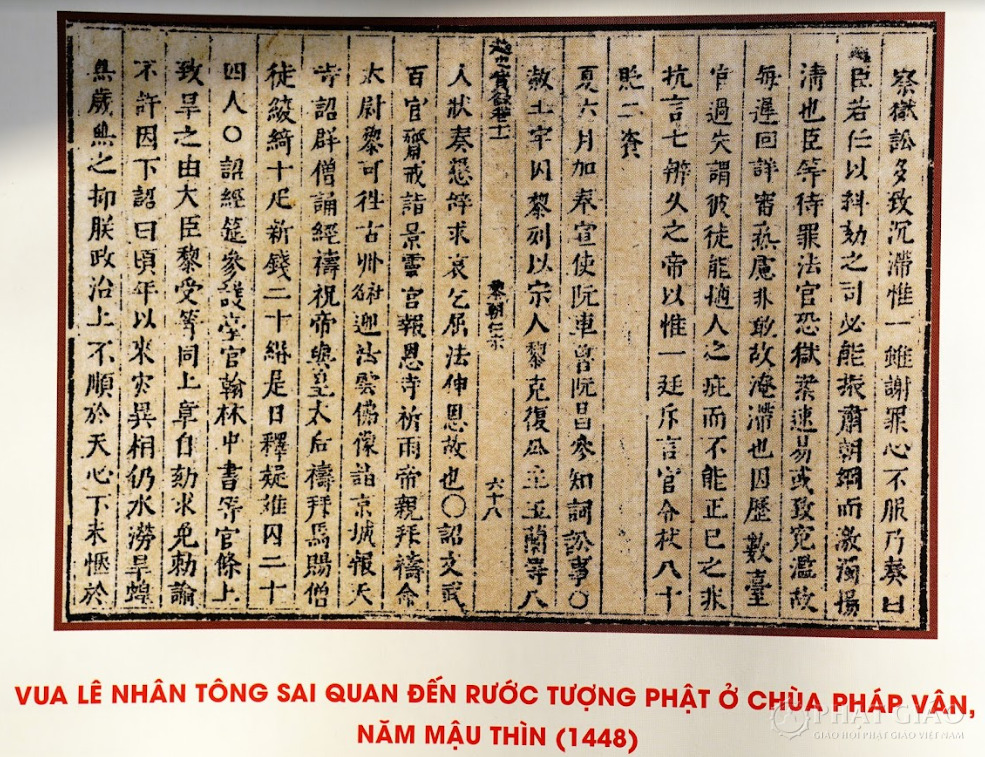 察獄訟多致沉滯惟一雖謝罪心不服乃奏曰
臣若任以糾劾之司必能振肅朝綱而激濁揚
清也臣等待罪法官恐獄案速易或致冤濫故
每遲回詳審熟慮非敢故淹滯也因歷數臺
官過失謂彼徒能擿人之疵而不能正己之非
抗言七辨久之帝以惟一廷斥言官令杖八十
貶二資
夏六月加奉宣使阮車曾阮昌參知詞訟事〇
赦土牢囚黎列以宗人黎克復公主玉蘭等八
實錄卷十一 黎朝仁宗 六十八
人狀奏懇辞求哀乞屈法伸恩故也〇詔文武
百官齋戒詣景靈宮報恩寺祈雨帝親拜禱命
太尉黎可徃古州社迎法雲佛像詣京城報天
寺詔群僧誦經禱祝帝與皇太后禱拜焉賜僧
徒綾綺十疋新錢二十緡是日釋疑难囚二十
四人〇詔經筵參議掌官翰林中書等官條上
致旱之由大臣黎受等同上章自劾求免勅諭
不許因下詔曰頃年以來灾異相仍水澇旱蝗
無歲無之抑朕政治上不順於天心下未愜於
VUA LÊ NHÂN TÔNG SAI QUAN ĐẾN RƯỚC TƯỢNG PHẬT Ở CHÙA PHÁP VÂN,
NĂM MẬU THÌN (1448)
PHẬT GIÁO
GIÁO HỘI PHẬT GIÁO VIỆT NAM